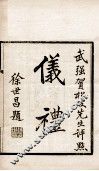 武强賀松坡先生評點
儀禮
徐世昌題